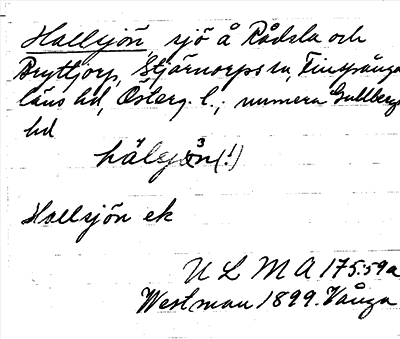 Hallsjön, sjö å Rådsla och
Bryttjorp, Stjärnorps sn, Finspånga
läns hd, Österg. l.; numera Gullbergs
hd
hälsjɜn (!)
Hallsjön ek
ULMA 175:59a
Westman 1899. Vånga